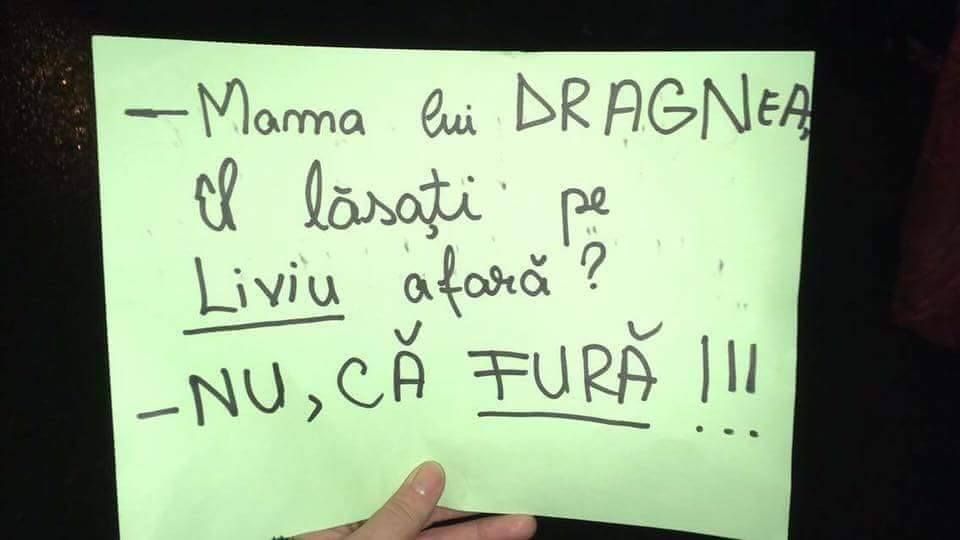 — Mama lui DRAGNEA,
Îl lăsați pe
Liviu afară?
- NU, CĂ FURĂ !!!